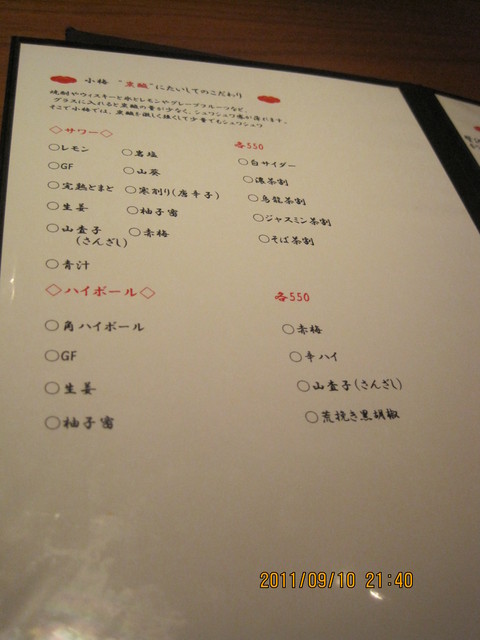 小梅 “炭酸”にたいしてのこだわり
焼酎やウィスキーと氷とレモンやグレープフルーツなど、
グラスに入れると炭酸の量が少なく、シュワシュワ感が薄れます。
そこで小梅では、炭酸を強くして少量でもシュワシュワ
◇サワー◇ 各550
○レモン ○岩塩 ○白サイダー
○GF ○山葵 ○濃茶割
○完熟とまと ○寒割り(唐辛子) ○烏龍茶割
○生姜 ○柚子蜜 ○ジャスミン茶割
○山査子 ○赤梅 ○そば茶割
(さんざし)
○青汁
◇ハイボール◇ 各550
○角ハイボール ○赤梅
○GF ○辛ハイ
○生姜 ○山査子(さんざし)
○柚子蜜 ○荒挽き黒胡椒
2011/09/10 21:40